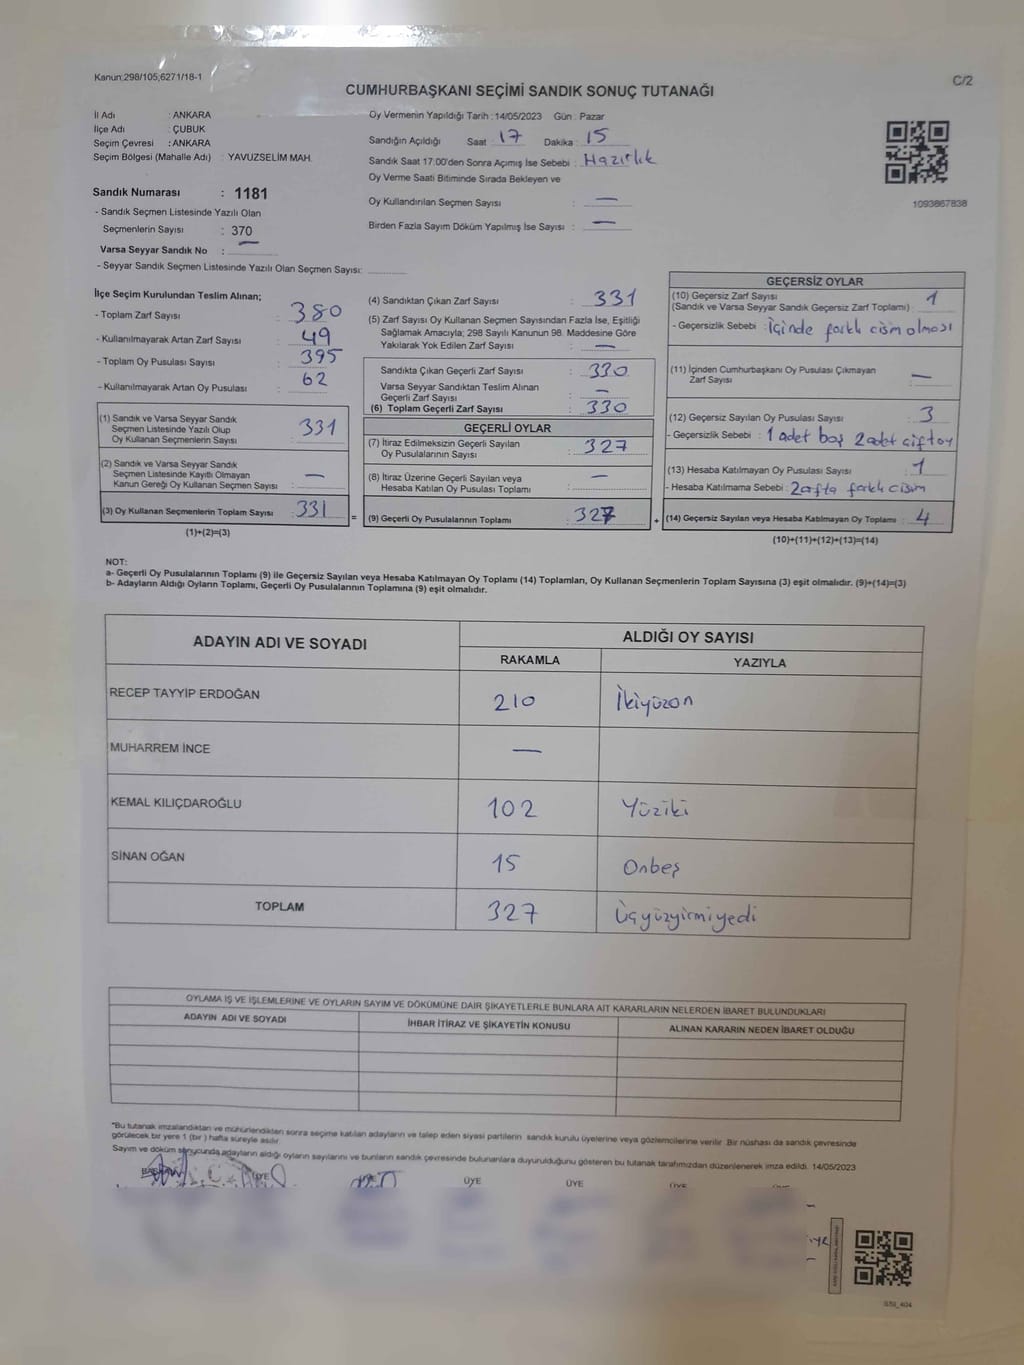 Kanun:298/105;6271/18-1
C/2
CUMHURBAŞKANI SEÇİMİ SANDIK SONUÇ TUTANAĞI
İl Adı : ANKARA
İlçe Adı : ÇUBUK
Seçim Çevresi : ANKARA
Seçim Bölgesi (Mahalle Adı) : YAVUZSELİM MAH.
Sandık Numarası : 1181
- Sandık Seçmen Listesinde Yazılı Olan
Seçmenlerin Sayısı : 370
Varsa Seyyar Sandık No : —
- Seyyar Sandık Seçmen Listesinde Yazılı Olan Seçmen Sayısı:
Oy Vermenin Yapıldığı Tarih : 14/05/2023 Gün : Pazar
Sandığın Açıldığı Saat : 17 Dakika : 15
Sandık Saat 17:00'den Sonra Açımış İse Sebebi : Hazırlık
Oy Verme Saati Bitiminde Sırada Bekleyen ve
Oy Kullandırılan Seçmen Sayısı : —
Birden Fazla Sayım Döküm Yapılmış İse Sayısı : —
1093867838
İlçe Seçim Kurulundan Teslim Alınan;
- Toplam Zarf Sayısı : 380
- Kullanılmayarak Artan Zarf Sayısı : 49
- Toplam Oy Pusulası Sayısı : 395
- Kullanılmayarak Artan Oy Pusulası : 62
(1) Sandık ve Varsa Seyyar Sandık
Seçmen Listesinde Yazılı Olup
Oy Kullanan Seçmenlerin Sayısı : 331
(2) Sandık ve Varsa Seyyar Sandık
Seçmen Listesinde Kayıtlı Olmayan
Kanun Gereği Oy Kullanan Seçmen Sayısı : —
(3) Oy Kullanan Seçmenlerin Toplam Sayısı : 331
(1)+(2)=(3)
(4) Sandıktan Çıkan Zarf Sayısı : 331
(5) Zarf Sayısı Oy Kullanan Seçmen Sayısından Fazla İse, Eşitliği
Sağlamak Amacıyla; 298 Sayılı Kanunun 98. Maddesine Göre
Yakılarak Yok Edilen Zarf Sayısı : —
Sandıkta Çıkan Geçerli Zarf Sayısı : 330
Varsa Seyyar Sandıktan Teslim Alınan
Geçerli Zarf Sayısı : —
(6) Toplam Geçerli Zarf Sayısı : 330
GEÇERLİ OYLAR
(7) İtiraz Edilmeksizin Geçerli Sayılan
Oy Pusulalarının Sayısı : 327
(8) İtiraz Üzerine Geçerli Sayılan veya
Hesaba Katılan Oy Pusulası Toplamı : —
= (9) Geçerli Oy Pusulalarının Toplamı : 327
GEÇERSİZ OYLAR
(10) Geçersiz Zarf Sayısı
(Sandık ve Varsa Seyyar Sandık Geçersiz Zarf Toplamı) : 1
- Geçersizlik Sebebi : İçinde farklı cisim olması
(11) İçinden Cumhurbaşkanı Oy Pusulası Çıkmayan
Zarf Sayısı : —
(12) Geçersiz Sayılan Oy Pusulası Sayısı : 3
- Geçersizlik Sebebi : 1 adet boş 2 adet çift oy
(13) Hesaba Katılmayan Oy Pusulası Sayısı : 1
- Hesaba Katılmama Sebebi : Zarfta farklı cisim
+ (14) Geçersiz Sayılan veya Hesaba Katılmayan Oy Toplamı : 4
(10)+(11)+(12)+(13)=(14)
NOT:
a- Geçerli Oy Pusulalarının Toplamı (9) ile Geçersiz Sayılan veya Hesaba Katılmayan Oy Toplamı (14) Toplamları, Oy Kullanan Seçmenlerin Toplam Sayısına (3) eşit olmalıdır. (9)+(14)=(3)
b- Adayların Aldığı Oyların Toplamı, Geçerli Oy Pusulalarının Toplamına (9) eşit olmalıdır.
ADAYIN ADI VE SOYADI ALDIĞI OY SAYISI
RAKAMLA YAZIYLA
RECEP TAYYİP ERDOĞAN 210 İkiyüzon
MUHARREM İNCE —
KEMAL KILIÇDAROĞLU 102 Yüziki
SİNAN OĞAN 15 Onbeş
TOPLAM 327 Üçyüzyirmiyedi
OYLAMA İŞ VE İŞLEMLERİNE VE OYLARIN SAYIM VE DÖKÜMÜNE DAİR ŞİKAYETLERLE BUNLARA AİT KARARLARIN NELERDEN İBARET BULUNDUKLARI
ADAYIN ADI VE SOYADI İHBAR İTİRAZ VE ŞİKAYETİN KONUSU ALINAN KARARIN NEDEN İBARET OLDUĞU
*Bu tutanak imzalandıktan ve mühürlendikten sonra seçime katılan adayların ve talep eden siyasi partilerin sandık kurulu üyelerine veya gözlemcilerine verilir. Bir nüshası da sandık çevresinde
görülecek bir yere 1 (bir ) hafta süreyle asılır.
Sayım ve döküm sonucunda adayların aldığı oyların sayılarını ve bunların sandık çevresinde bulunanlara duyurulduğunu gösteren bu tutanak tarafımızdan düzenlenerek imza edildi. 14/05/2023
BAŞKAN ÜYE ÜYE ÜYE ÜYE